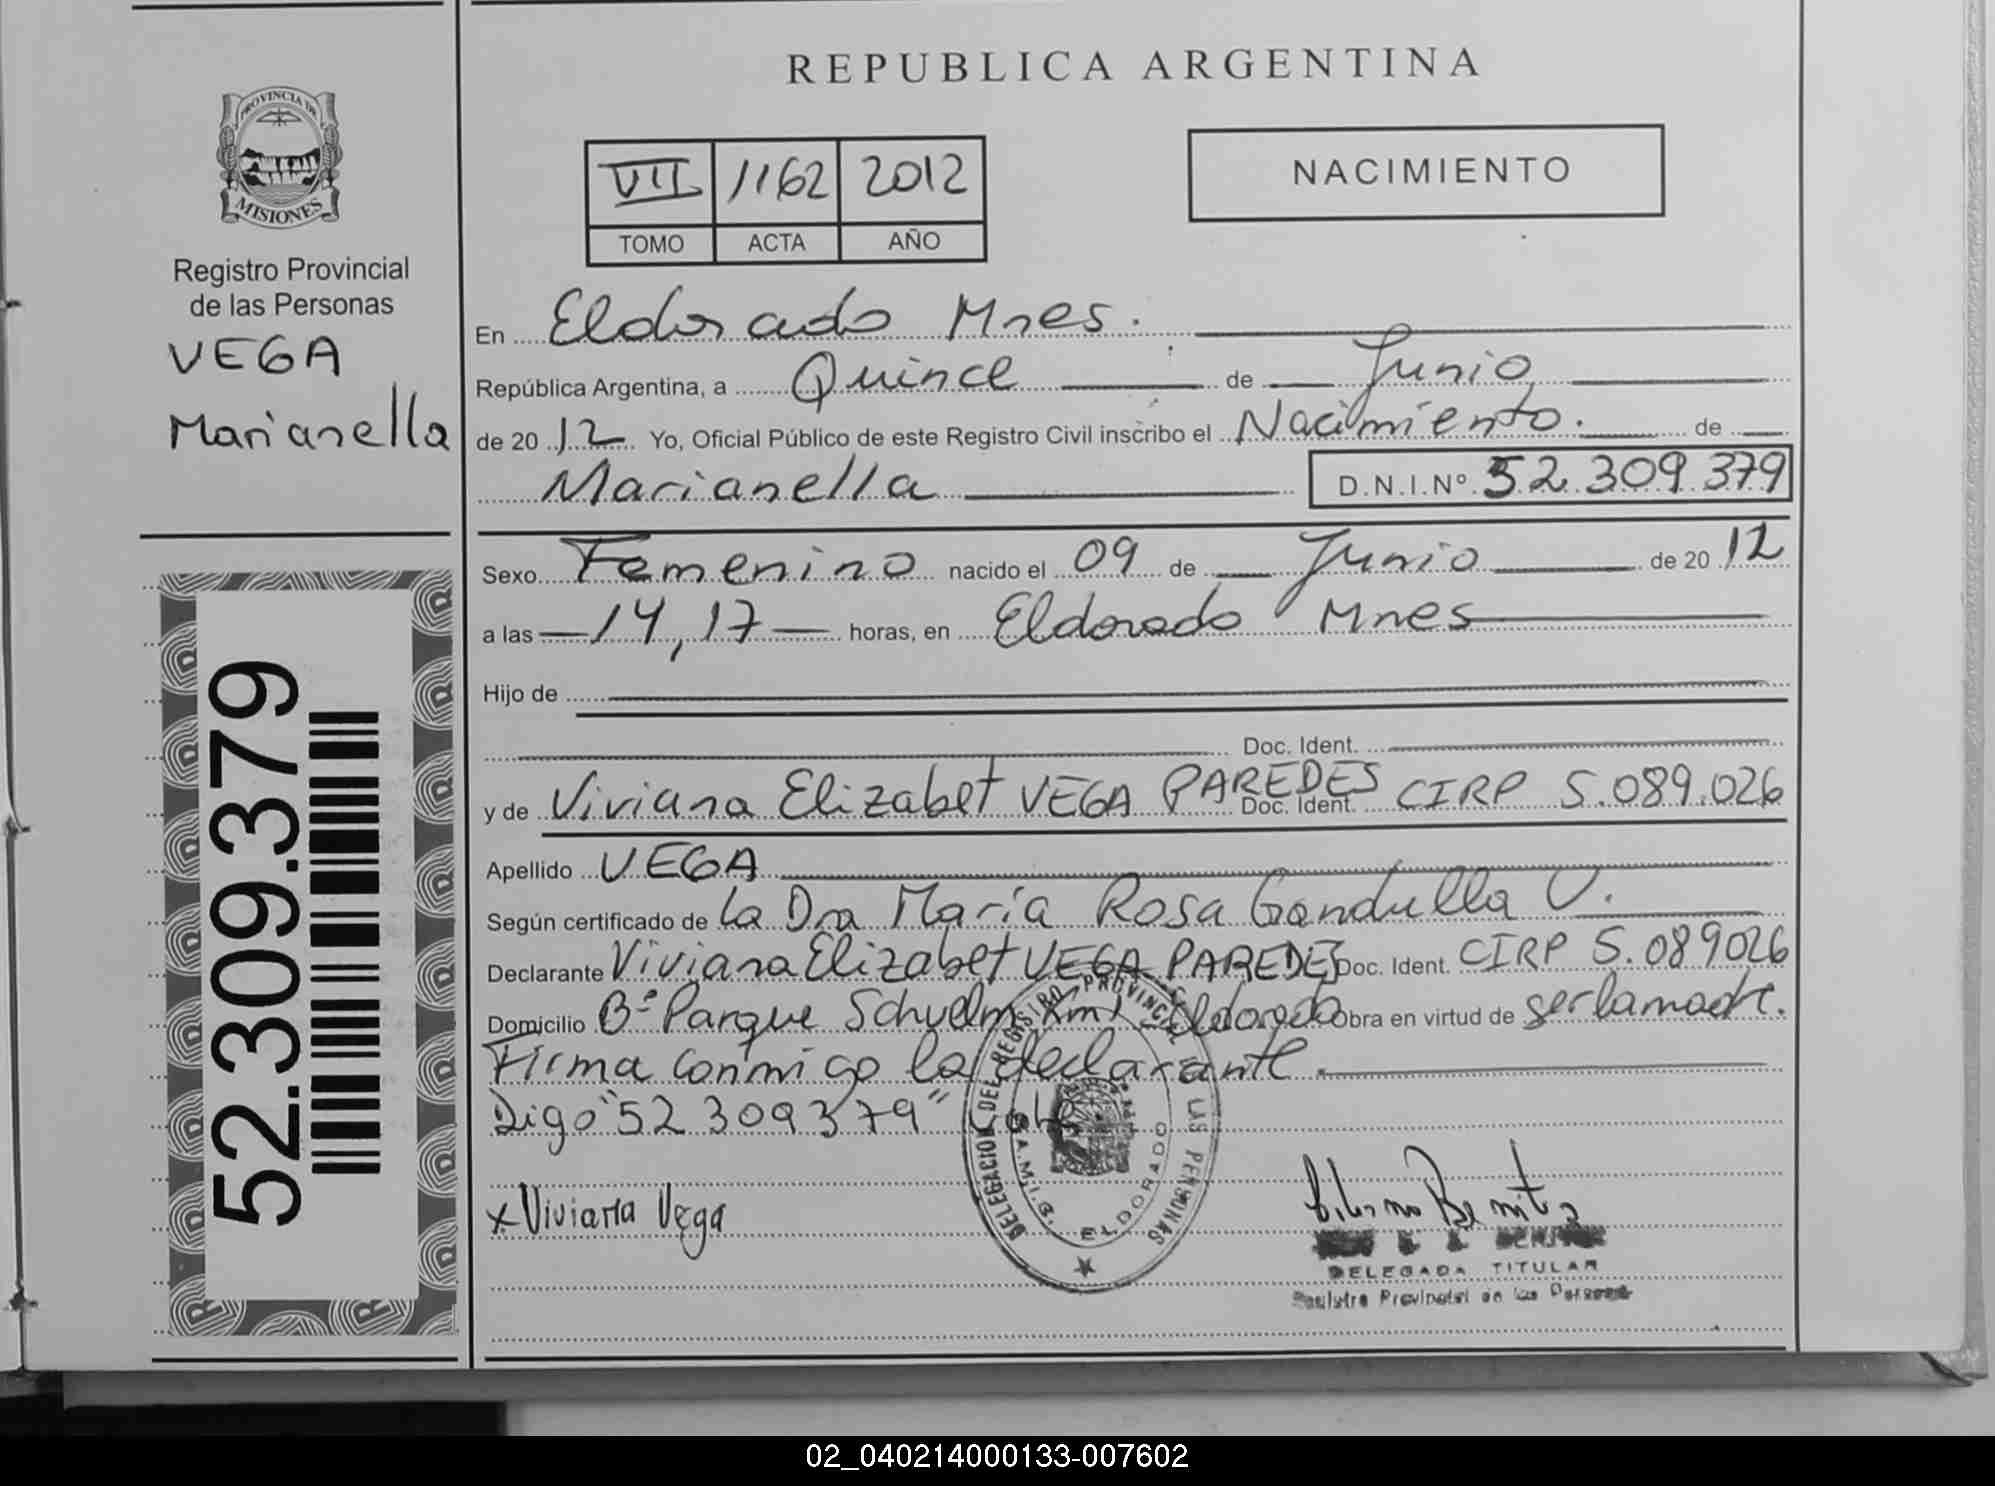 REPUBLICA ARGENTINA
PROVINCIA DE
MISIONES
Registro Provincial
de las Personas
VEGA
Marianella
52.309.379
VII 1162 2012
TOMO ACTA AÑO
NACIMIENTO
En Eldorado Mnes.
República Argentina, a Quince de Junio
de 2012 Yo, Oficial Público de este Registro Civil inscribo el Nacimiento. de
Marianella D.N.I.Nº 52.309.379
Sexo Femenino nacido el 09 de Junio de 2012
a las 14,17 horas, en Eldorado Mnes
Hijo de
Doc. Ident.
y de Viviana Elizabet VEGA PAREDES Doc. Ident. CIRP 5.089.026
Apellido VEGA
Según certificado de la Dra María Rosa Gandulla V.
Declarante Viviana Elizabet VEGA PAREDES Doc. Ident. CIRP 5.089026
Domicilio Bº Parque Schuelm Km 1 Eldorado Obra en virtud de ser la madre.
Firma conmigo la declarante.
Digo "52 309379" Vale
x Viviana Vega
DELEGACION DEL REGISTRO PROVINCIAL DE LAS PERSONAS
ELDORADO
DELEGADA TITULAR
Registro Provincial de las Personas
02_040214000133-007602